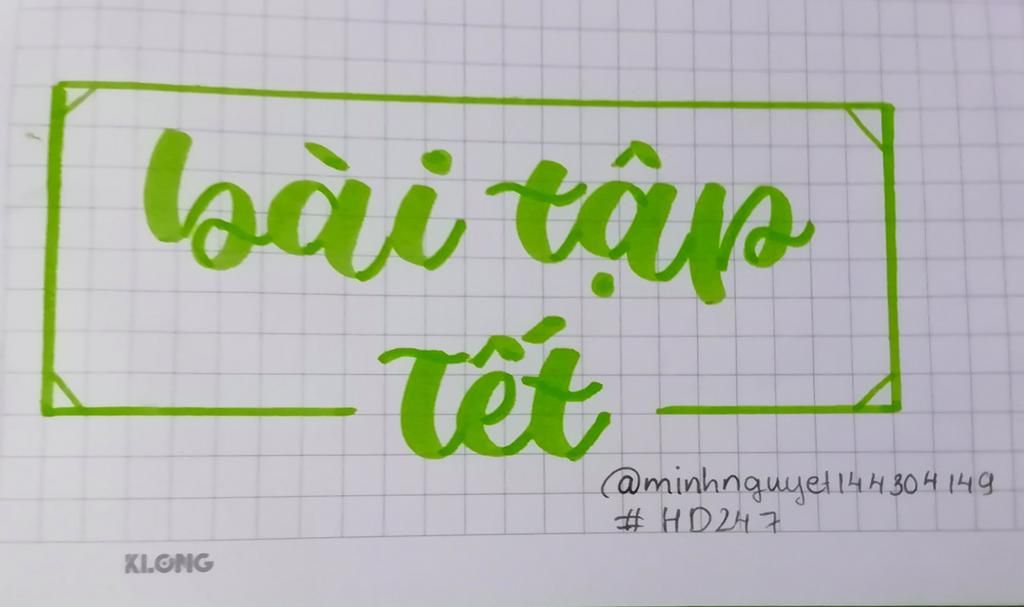 bài tập
Tết
@minhnguyet144304149
# HD247
KLONG